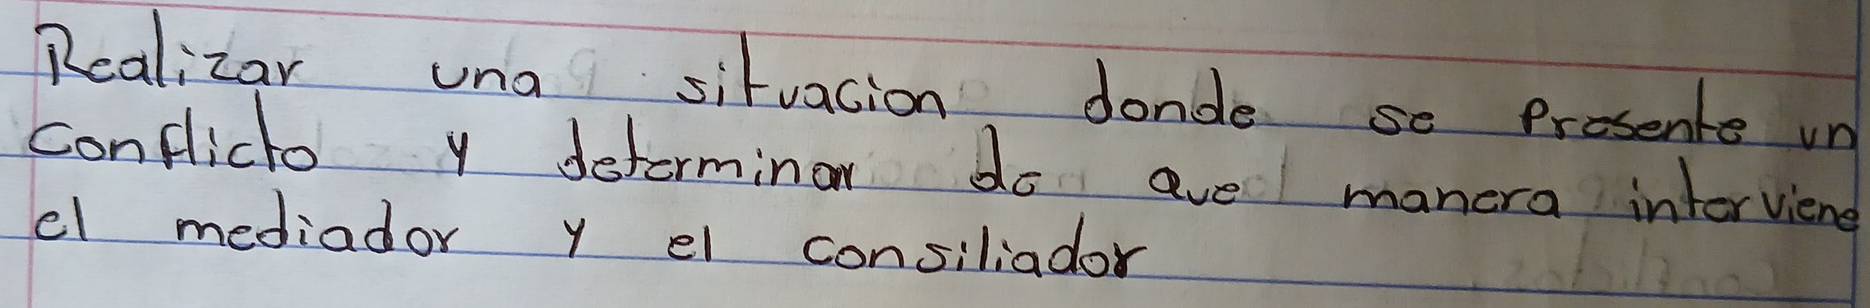 Realizar una situacion donde se Presente un
conflicto y determinar de que manera interviene
el mediador y el consiliador